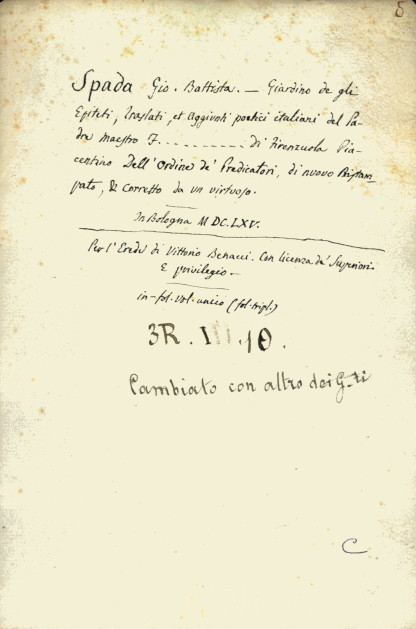 8
Spada Gio. Battista. — Giardino de gli
Epiteti, Traslati, et Aggiunti poetici italiani del Pa-
dre maestro F. . . . . . . . . . di Firenzuola Pia-
centino Dell'Ordine de' Predicatori, di nuovo Ristam-
pato, & corretto da un virtuoso.
In Bologna M DC. LXV.
Per l'Erede di Vittorio Benacci. Con licenza de' Superiori.
E privilegio —
in-fol. vol. unico (fol. tripl.)
3R. III .10.
Cambiato con altro dei
C